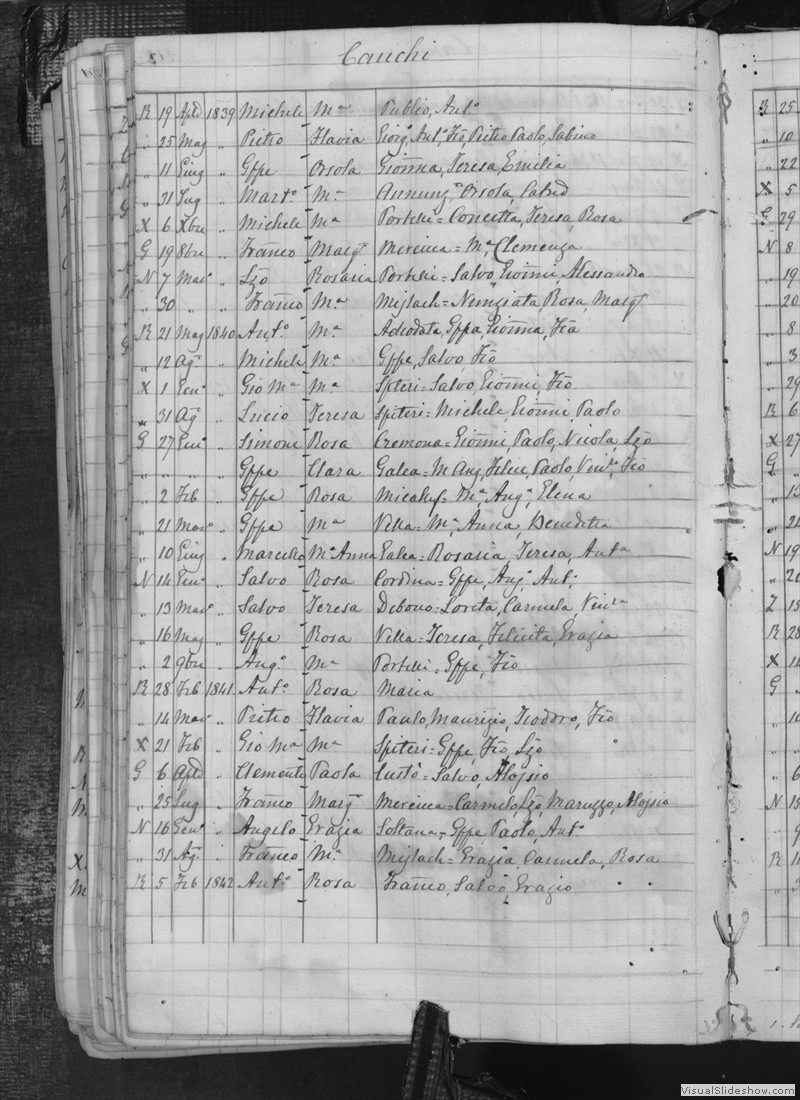 Cauchi
R 19 Apl 1839 Michele Mª Publio, Antº
„ 25 Mag „ Pietro Flavia Giorgº, Antº, Fio, Pietro Paolo, Sabino
„ 11 Giug „ Gffe Orsola Giõnna, Teresa, Emilia
„ 31 Lug „ Martº Mª Annunzª, Orsola,
X 6 Xbre „ Michele Mª Portelli = Concetta, Teresa, Rosa
G 19 8bre „ Franco Margt Mercieca = Mª Clemenza
N 7 Marº „ Lzo Rosaria Portelli = Salvo, Giõnni, Alessandro
„ 30 „ „ Franco Mª Mizlach = Nunziata, Rosa, Margt
R 21 Mag 1840 Antº Mª Adeodata, Gffa, Giõnna, Fia
„ 12 Agº „ Michele Mª Gffe, Salvo, Fio
X 1 Genº „ Gio Mª Mª Spiteri = Salvo, Giõnni, Fio
„ 31 Ag „ Lucio Teresa Spiteri = Michele, Giõnni, Paolo
G 27 Genº „ Simone Rosa Cremona = Giõnni, Paolo, Nicola, Lzo
„ „ „ „ Gffe Clara Galea = M Ang, Felice, Paolo, Vinˢº, Fio
„ 2 Feb „ Gffe Rosa Micallef = Mª, Angª, Elena
„ 21 Marº „ Gffe Mª Vella = Mª, Anna, Benedetta
„ 10 Giug „ Marcello Mª Anna Galea = Rosaria, Teresa, Antª
N 14 Genº „ Salvo Rosa Cordina = Gffe, Angº, Antº
„ 13 Marº „ Salvo Teresa Debono = Loreta, Carmela, Vinˢª
„ 16 Mag „ Gffe Rosa Vella = Teresa, Felicita, Grazia
„ 2 9bre „ Angº Mª Portelli = Gffe, Fio
R 28 Feb 1841 Antº Rosa Maria
„ 14 Marº „ Pietro Flavia Paulo, Maurizio, Teodoro, Fio
X 21 Feb „ Gio Mª Mª Spiteri = Gffe, Fio, Lzo
G 6 Apl „ Clemente Paola Custò = Salvo, Aloysio
„ 25 Lug „ Franco Margt Mercieca = Carmelo, Lzo, Maruzzo, Aloysio
N 16 Genº „ Angelo Grazia Soltana = Gffe, Paolo, Antº
„ 31 Ag. „ Franco Mª Mizlach = Grazia, Carmela, Rosa
R 5 Feb 1842 Antº Rosa Franco, Salvo, Grazio
R 25
„ 10
„ 22
X 5
G 29
N 8
„ 19
„ 20
„ 8
„ 3
„ 29
R 6
X 27
G „
„ 13
„ 21
N 19
„ 20
Z 15
R 28
X 14
G 5
„ 10
„ 6
N 15
R 11
VisualSlideshow.com